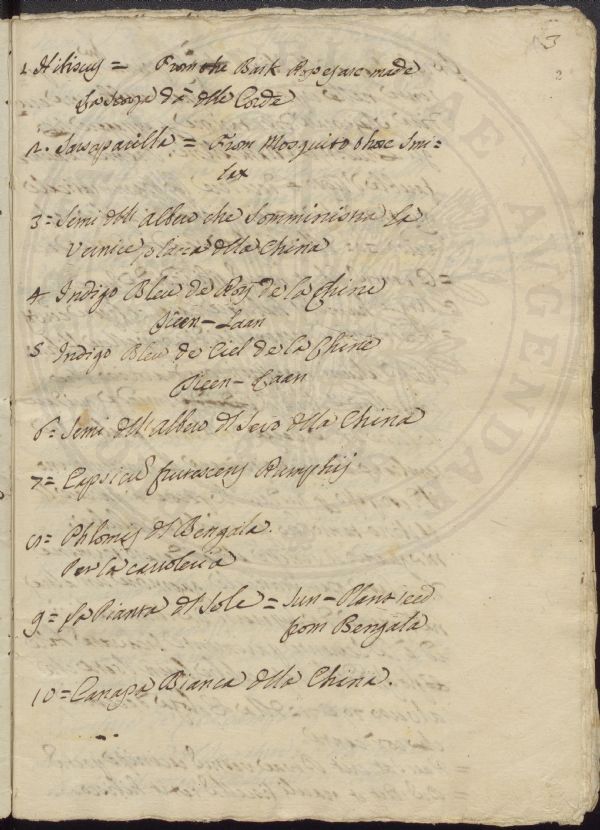 3
2
1. Hibiscus = From the Bark Ropes are made
La Scorza dà delle Corde
2. Sarsaparilla = From Mosquito Shore Smi-
lax
3 = Semi dell albero che somministra la
Vernice della China
4. Indigo Bleu de Roy de la Chine
Tieen-Laan
5 Indigo Bleu de Ciel de la Chine
Tieen-Laan
6 = Semi dell albero del Sevo della China
7 = Capsicũ frutescens Rumphij
8 = Phlomis del Bengala.
Per la
9 = La Pianta del Sole = Sun-Plant seed
from Bengala
10 = Canapa Bianca della China.